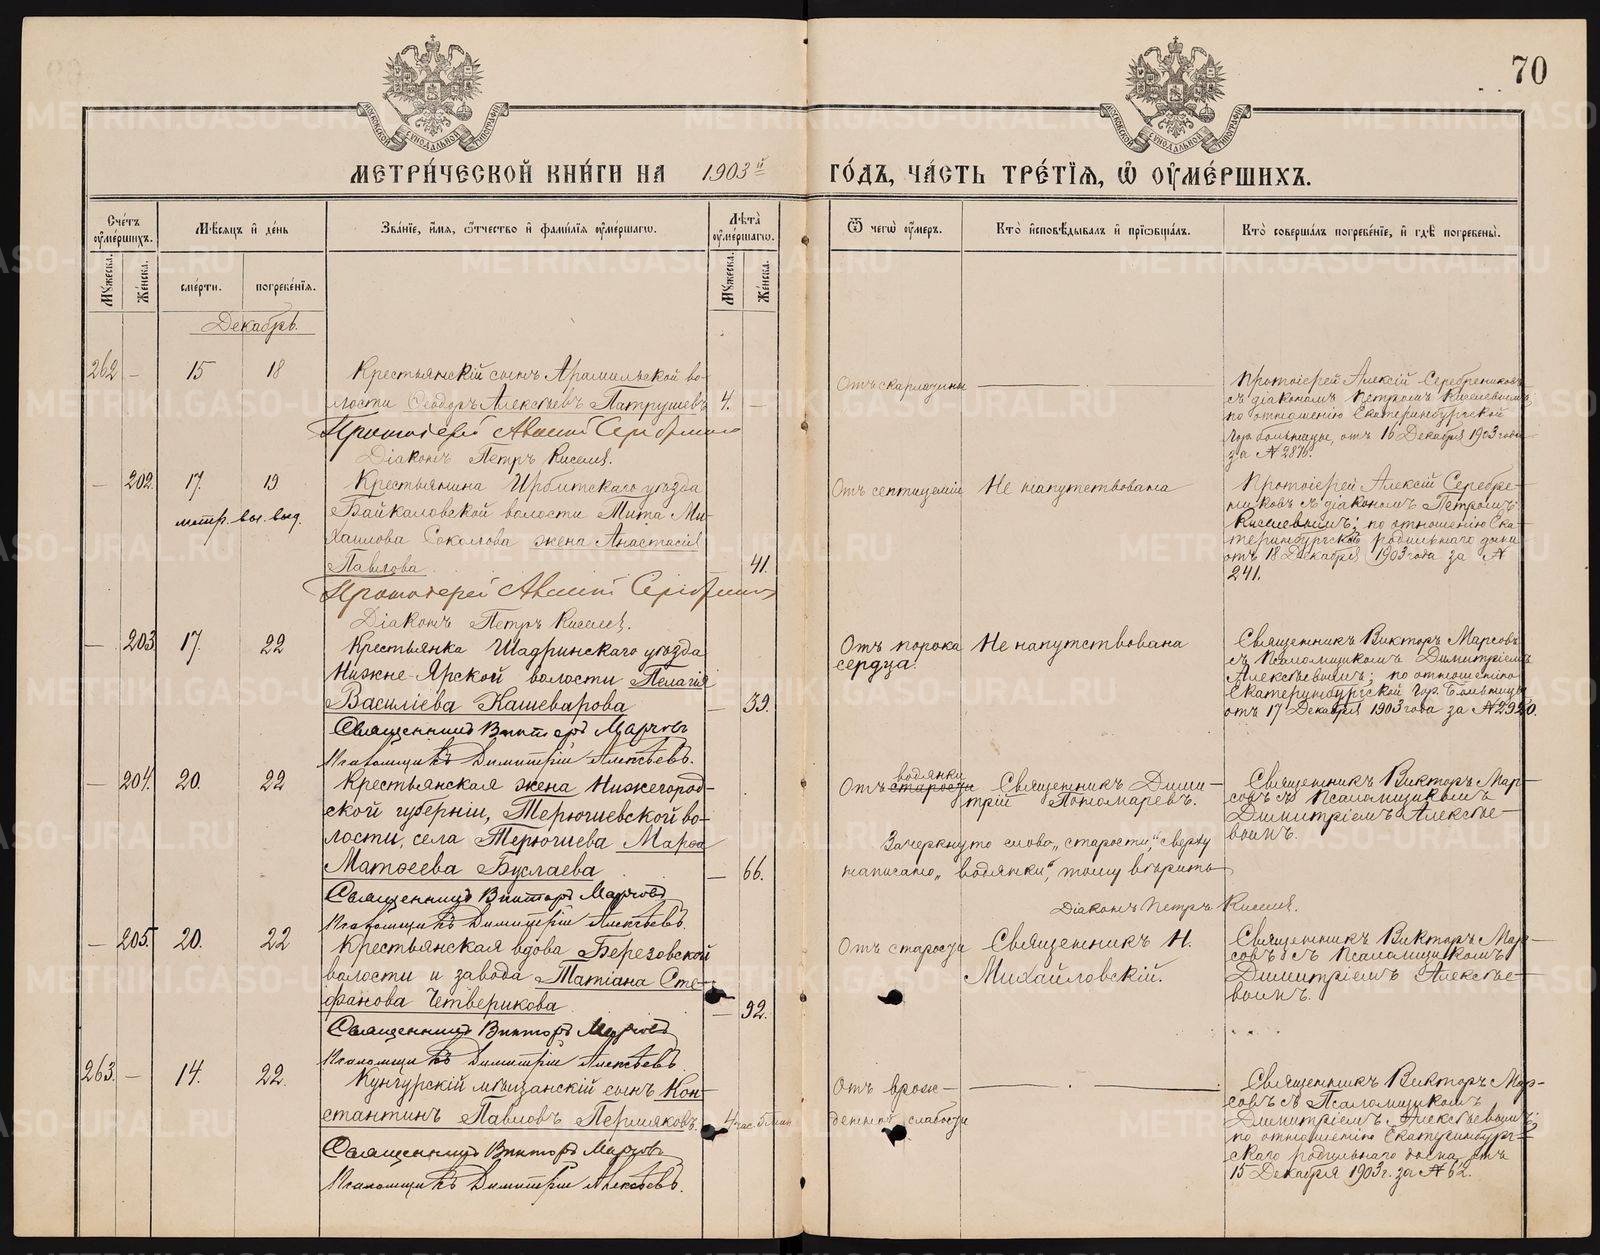 70
МЕТРИ́ЧЕСКОЙ КНИ́ГИ НА 1903й ГО́ДЪ, ЧА́СТЬ ТРЕ́ТІЯ, Ѡ ОУ҆МЕ́РШИХЪ.
Сче́тъ оу҆ме́ршихъ.
Му́жеска.
Же́нска.
Мѣ́сяцъ и҆ де́нь
сме́рти.
погребе́нія.
Зва́ніе, и҆́мя, ѻ҆́тчество и҆ фами́лія оу҆ме́ршагѡ.
Лѣ́та оу҆ме́ршагѡ.
Му́жеска.
Же́нска.
Ѿ чегѡ̀ оу҆́меръ.
Кто̀ и҆сповѣ́дывалъ и҆ прїѡбща́лъ.
Кто̀ соверша́лъ погребе́ніе, и҆ гдѣ̀ погребены̀.
Декабрь.
262 — 15 18
Крестьянскій сынъ Арамильской во-
лости Ѳеодоръ Алексѣевъ Патрушевъ 4. —
Протоіерей Алексій Серебрениковъ
Діаконъ Петръ Киселев.
Отъ скарлатины
Протоіерей Алексій Серебрениковъ
съ діакономъ Петромъ Киселевымъ,
по отношенію Екатеринбургской
Гор. больницы, отъ 16 Декабря 1903 года
за № 2876.
— 202. 17. 19
метр. вы. выд.
Крестьянина Ирбитскаго уѣзда
Байкаловской волости Тита Ми-
хаилова Соколова жена Анастасія
Павлова 41.
Протоіерей Алексій Серебрениковъ
Діаконъ Петръ Киселев.
Отъ септицеміи
Не напутствована
Протоіерей Алексій Серебре-
никовъ съ діакономъ Петромъ
Киселевымъ; по отношенію Ека-
теринбургскаго родильнаго дома
отъ 18 Декабря 1903 года за №
241.
— 203 17. 22
Крестьянка Шадринскаго уѣзда
Нижне-Ярской волости Пелагія
Василіева Кашеварова — 39.
Священникъ Викторъ Марсовъ
Псаломщикъ Димитрій Алексѣевъ.
Отъ порока
сердца.
Не напутствована
Священникъ Викторъ Марсовъ
съ Псаломщикомъ Димитріемъ
Алексѣевымъ; по отношенію
Екатеринбургской Гор. Больницы
отъ 17 Декабря 1903 года за № 2920.
— 204. 20. 22
Крестьянская жена Нижегород-
ской губерніи, Терюшевской во-
лости, села Терюшева Марѳа
Матѳеева Буслаева — 66.
Священникъ Викторъ Марсовъ
Псаломщикъ Димитрій Алексѣевъ.
водянки
Отъ старости
Священникъ Дими-
трій Пономаревъ.
Священникъ Викторъ Мар-
совъ съ Псаломщикомъ
Димитріемъ Алексѣе-
вымъ.
Зачеркнуто слово „старости,“ сверху
написано „водянки“, тому вѣрить
Діаконъ Петръ Киселев.
— 205. 20. 22
Крестьянская вдова Березовской
волости и завода Татіана Сте-
фанова Четверикова — 92.
Священникъ Викторъ Марсовъ
Псаломщикъ Димитрій Алексѣевъ.
Отъ старости
Священникъ Н.
Михайловскій.
Священникъ Викторъ Мар-
совъ съ Псаломщикомъ
Димитріемъ Алексѣе-
вымъ.
263. — 14. 22.
Кунгурскій мѣщанскій сынъ Кон-
стантинъ Павловъ Пермяковъ. 4 час. 5 мин
Священникъ Викторъ Марсовъ
Псаломщикъ Димитрій Алексѣевъ.
Отъ врож-
денной слабости
Священникъ Викторъ Мар-
совъ съ Псаломщикомъ
Димитріемъ Алексѣевымъ;
по отношенію Екатеринбург-
скаго родильнаго дома отъ
15 Декабря 1903 г. за № 62.
METRIKI.GASO-URAL.RU